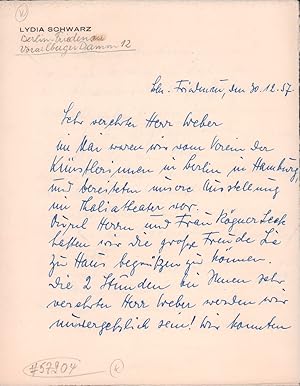 LYDIA SCHWARZ
Berlin-Friedenau
Vorarlberger Damm 12
Bln. Friedenau, den 30.12.57.
Sehr verehrter Herr Weber
im Mai waren wir vom Verein der
Künstlerinnen in Berlin in Hamburg
und bereiteten unsere Ausstellung
im Thaliatheater vor.
Durch Herrn und Frau Rögner
hatten wir die große Freude Sie
zu Haus begrüßen zu können.
Die 2 Stunden bei Ihnen sehr
verehrter Herr Weber werden wir
unvergeßlich sein! Wir konnten
#57204